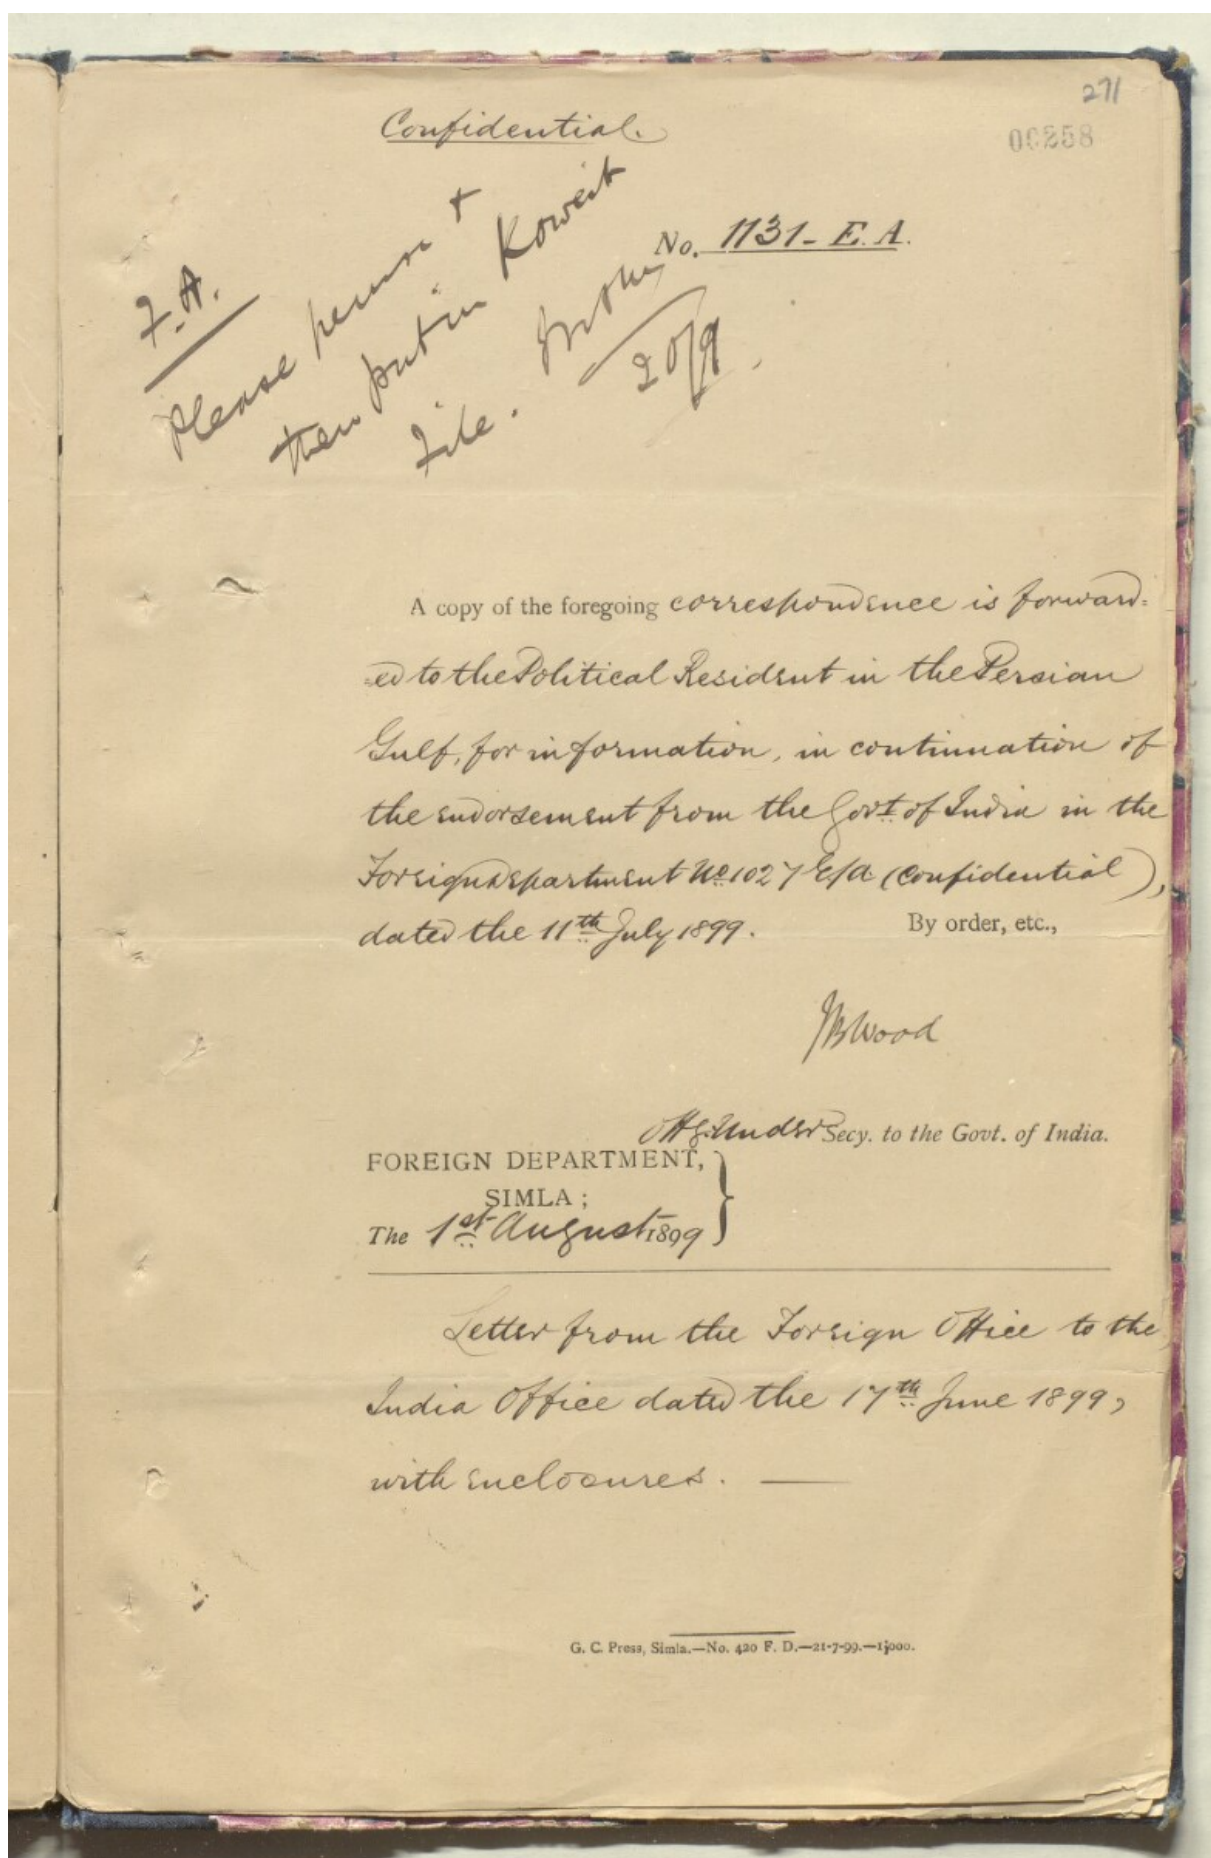 271
00258
Confidential.
No. 1131-E.A.
F.A.
Please peruse +
then put in Koweit
File.
20/9.
A copy of the foregoing correspondence is forward=
=ed to the Political Resident in the Persian
Gulf, for information, in continuation of
the endorsement from the Govt. of India in the
Foreign Department No. 1027 E/A (Confidential),
dated the 11th July 1899. By order, etc.,
JBWood
Offg. Under Secy. to the Govt. of India.
FOREIGN DEPARTMENT,
SIMLA ;
The 1st August 1899
Letter from the Foreign Office to the
India Office dated the 17th June 1899,
with enclosures. —
G. C. Press, Simla.—No. 420 F. D.—21-7-99.—1,000.